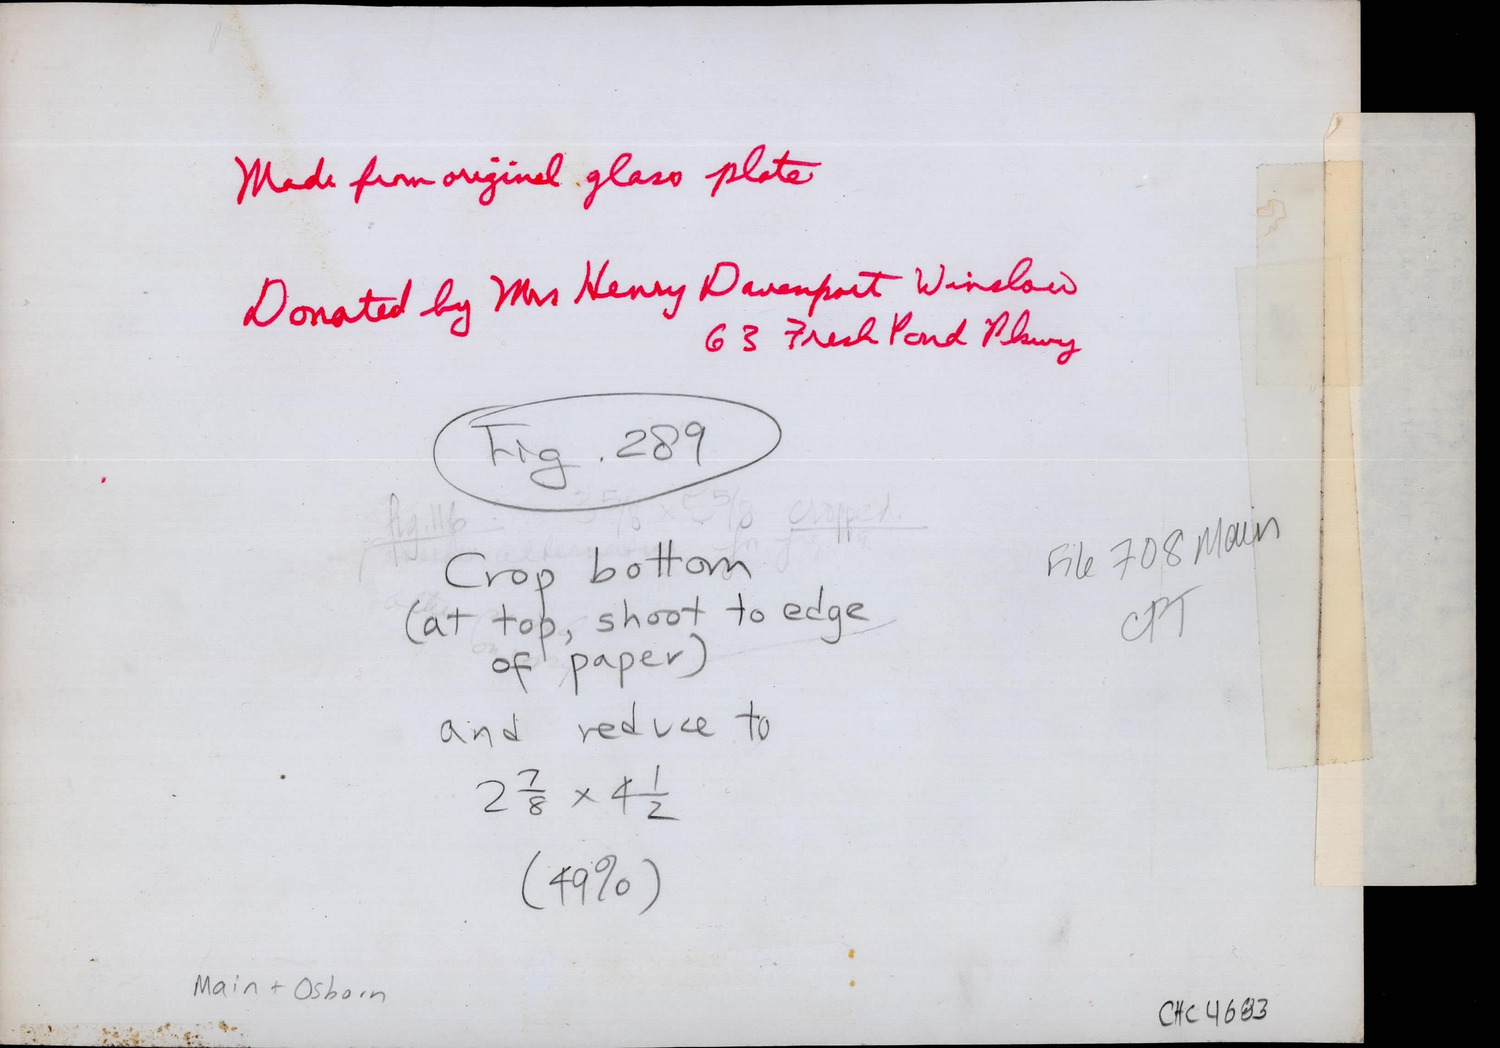 Made from original glass plate
Donated by Mrs Henry Davenport Winslow
63 Fresh Pond Pkwy
Fig. 289
fig. 116 3 5/8 x 5 5/8 cropped.
Crop bottom
(at top, shoot to edge
of paper)
and reduce to
2 7/8 x 4 1/2
(49%)
File 708 Main
CPT
Main + Osborn
CHC 4683